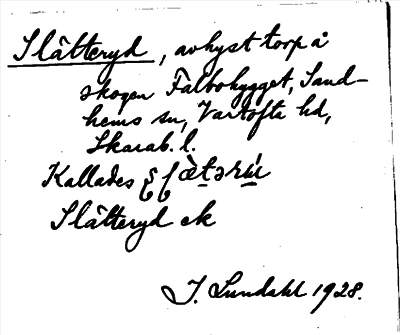 Slätteryd, avhyst torp å
skogen Falbohygget, Sand-
hems sn, Vartofta hd,
Skarab. l.
Kallades
Slätteryd ck
I. Lundahl 1928.